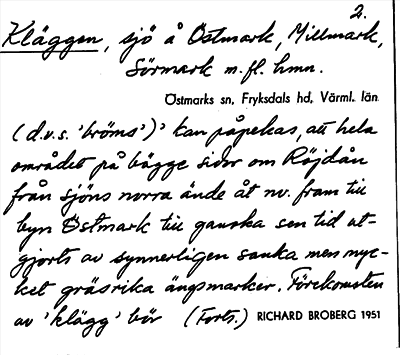 2.
Kläggen, sjö å Östmark, Millmark,
Sörmark m. fl. hmn.
Östmarks sn, Fryksdals hd, Värml. län
(d.v.s. 'bröms')' kan påpekas, att hela
området på bägge sidor om Röjdån
från sjöns norra ände åt nv. fram till
byn Östmark till ganska sen tid ut-
gjorts av synnerligen sanka men myc-
ket gräsrika ängsmarker. Förekomsten
av 'klägg' bör (Forts.) RICHARD BROBERG 1951